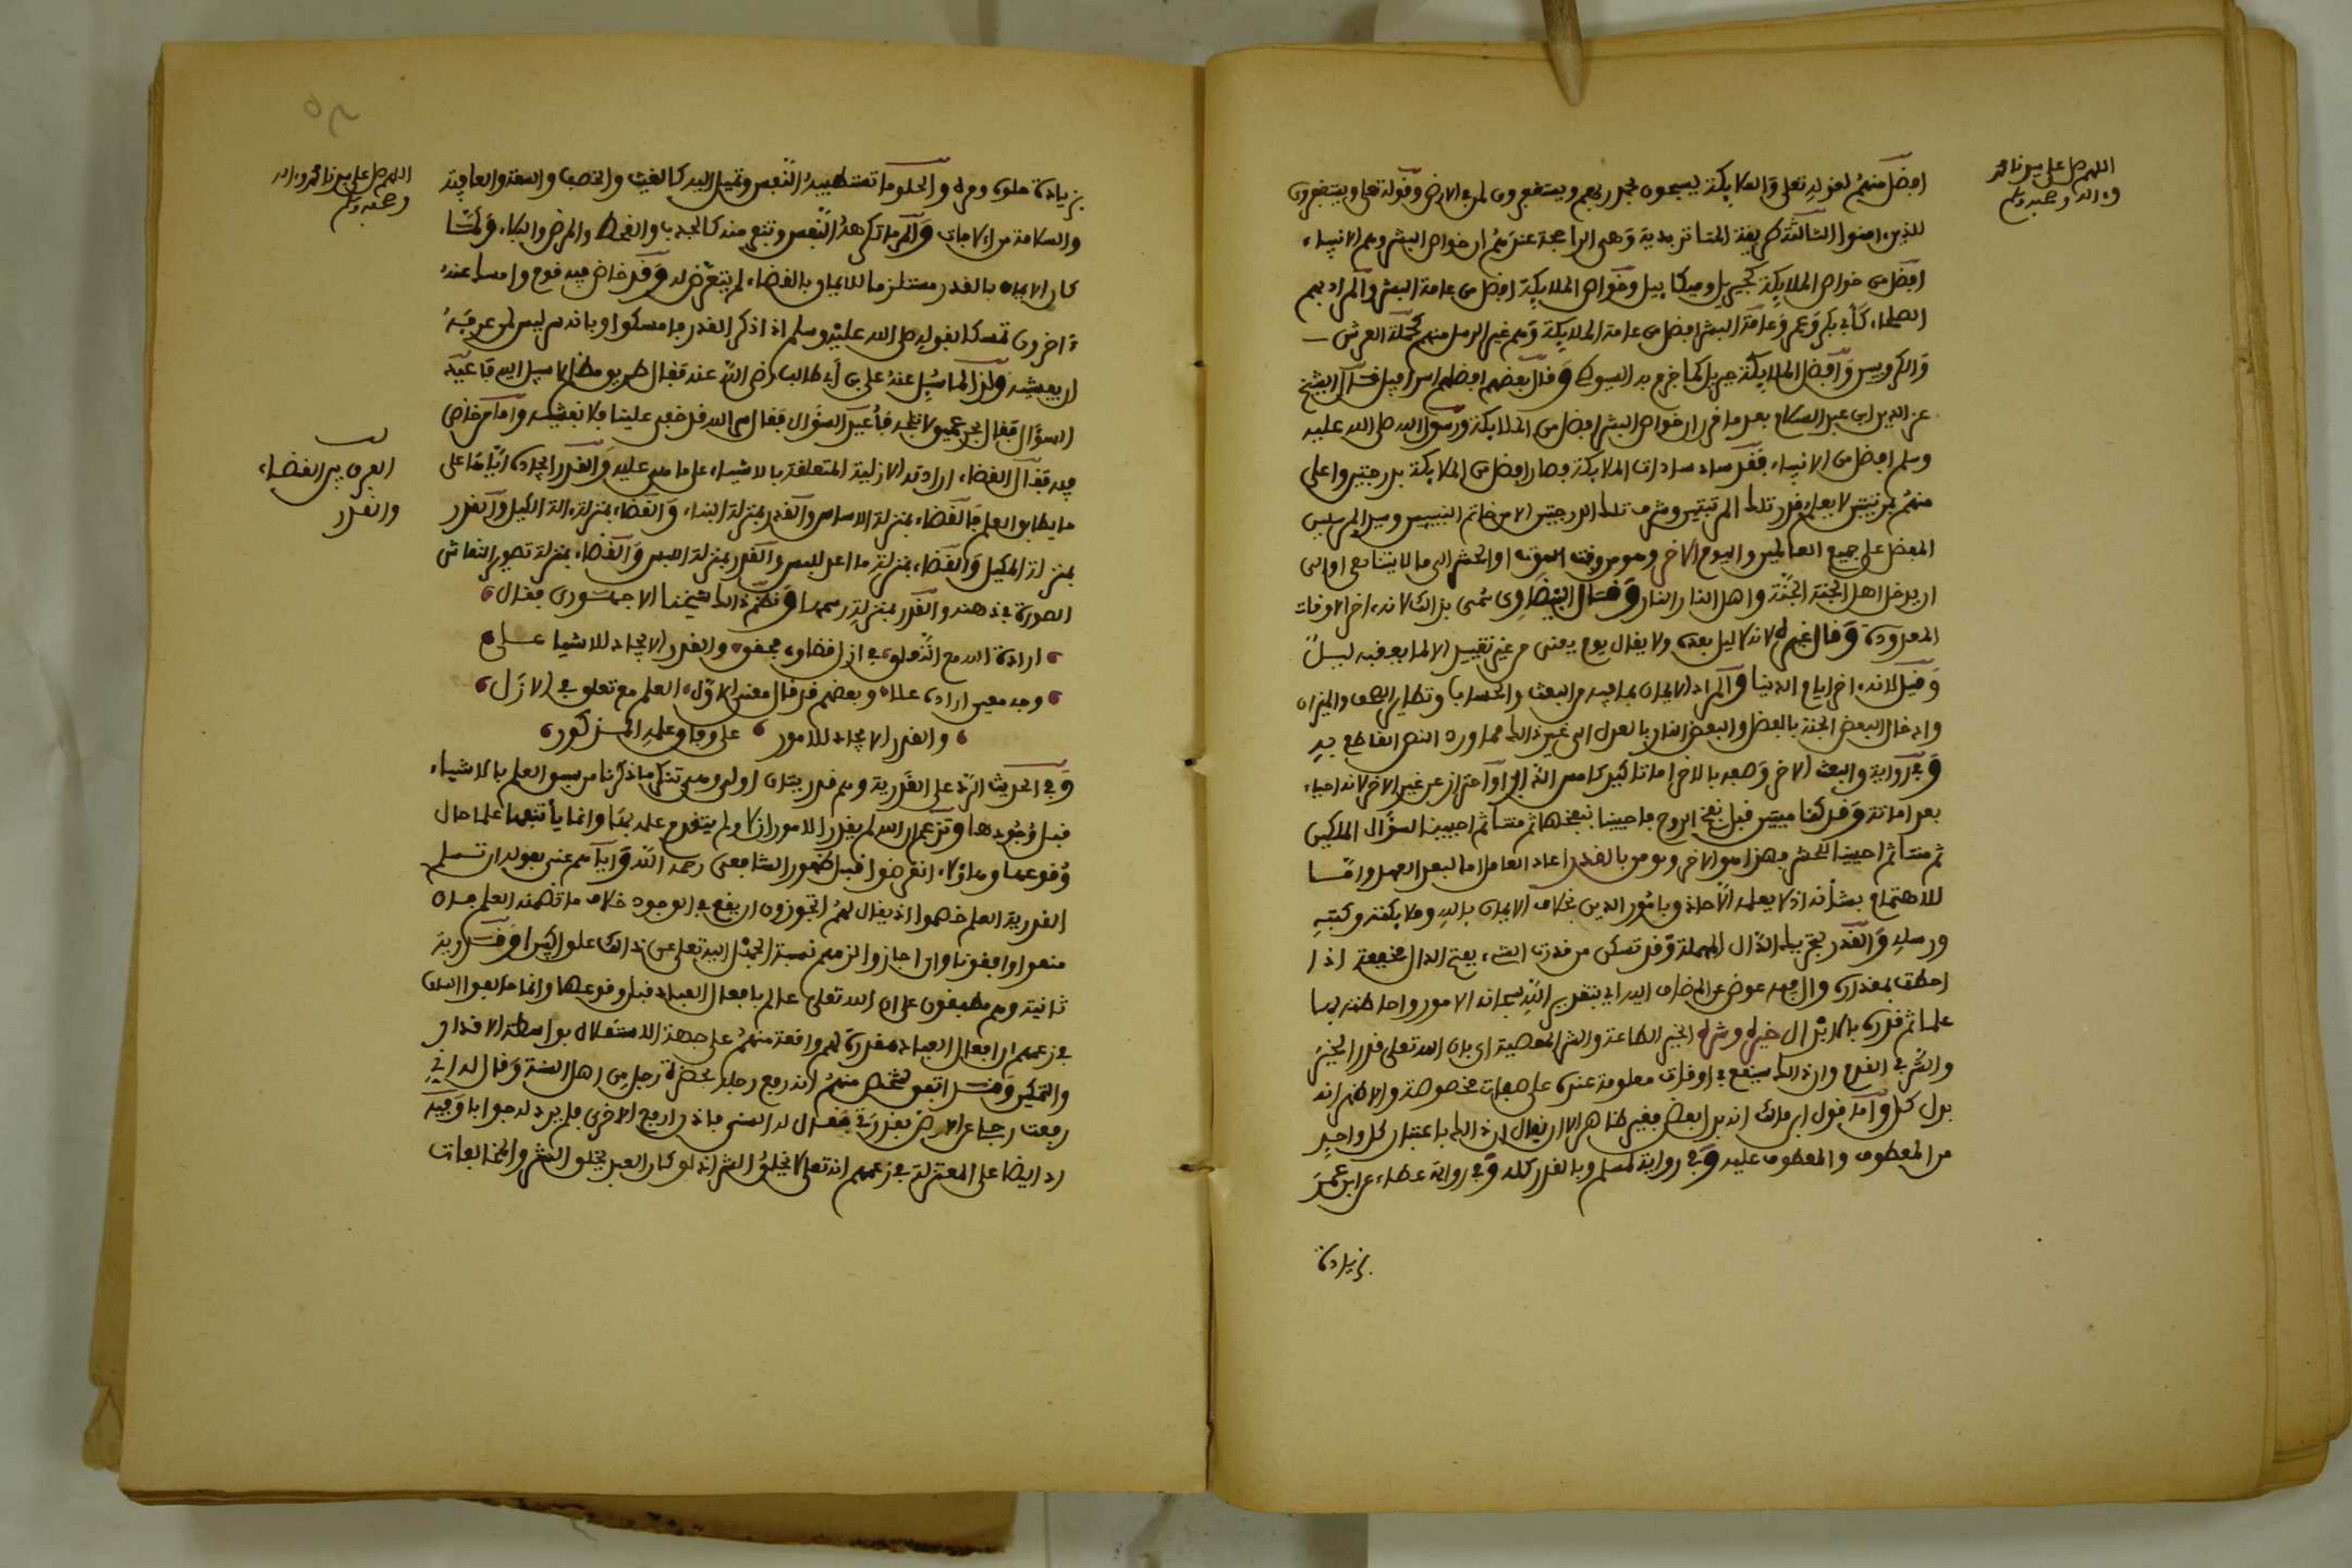 اللهم صل على سيدنا محمد
وءاله وصحبه وسلم
افضل منهم لقوله تعلى والملايكة يسبحون بحمد ربهم ويستغفرون لمن في الارض وقوله تعلى ويستغفرون
للذين ءامنوا الثالثة طريقة الماتريدية وهى الراجحة عندهم ان خواص البشر وهم الانبياء
افضل من خواص الملايكة كجبريل وميكاييل وخواص الملايكة افضل من عامة البشر والمراد بهم
الصلحاء كأبي بكر وعمر وعامة البشر افضل من عامة الملايكة وهم غير الرسل منهم كحملة العرش
والكروبيين وافضل الملايكة جبريل كما جزم به السيوطي وقال بعضهم افضلهم اسرافيل قال الشيخ
عز الدين ابن عبد السلام بعد ما قرر ان خواص البشر افضل من الملايكة ورسول الله صلى الله عليه
وسلم افضل من الانبياء فقد ساد سادات الملايكة فصار افضل من الملايكة بدرجتين واعلى
منهم بمرتبتين لا يعلم قدر تلك المرتبتين وشرف تلك الدرجتين الا من خاتم النبيين وسيد المرسلين
المفضل على جميع العالمين واليوم الاخر وهو من وقت الموت او الحشر الى ما لا يتناهى او الى
ان يدخل اهل الجنة الجنة واهل النار النار وقال البيضاوي سمى بذالك لانه ءاخر الاوقات
المعدودة وقال غيره لانه لا ليل بعده ولا يقال يوم يعنى من غير تقييد الا لما يعقبه ليل
وقيل لانه ءاخر ايام الدنيا والمراد الايمان بما فيه من البعث والحساب وتطاير الصحف والميزان
وادخال البعض الجنة بالفضل والبعض النار بالعدل الى غير ذالك مما ورد النص القاطع به
وفي رواية والبعث الاخر وصفه بالاخر اما تاكيد كامس الذاهب او احتراز عن غير الاخر لانه احياء
بعد اماتة وقد كنا ميتين قبل نفخ الروح فاحيينا بنفخها ثم متنا ثم احيينا لسؤال الملكين
ثم متنا ثم احيينا للحشر فهذا هو الاخر ويومن بالقدر اعاد العامل اما لبعد العهد واما
للاهتمام بشأنه اذ لا يعلمه الا حاذق بامور الدين بخلاف الايمان بالله وملايكته وكتبه
ورسله والقدر بتحريك الدال المهملة وقد تسكن من قدرت الشيء بفتح الدال مخففة اذا
احطت بمقداره وال فيه عوض عن المضاف اليه اي بتقدير الله سبحانه الامور واحاطته بها
علما ثم قدره بالابدال خيره وشره الخير الطاعة والشر المعصية اي بان الله تعلى قدر الخير
والشر في القدم وان ذالك سيقع في اوقات معلومة عنده على صفات مخصوصة والاظهر انه
بدل كل واما قول ابن مالك انه بدل بعض فغير ظاهر الا ان يقال ان ذالك باعتبار كل واحد
من المعطوف والمعطوف عليه وفي رواية لمسلم وبالقدر كله وفي رواية عطاء عن ابن عمر
زيادة
اللهم صل على سيدنا محمد وءاله
وصحبه وسلم
زيادة حلوه ومره والحلو ما تستطيبه النفس وتميل اليه كالغيث والخصب والسعة والعافية
والسلامة من الافات والمر ما تكرهه النفس وتنفر منه كالجدب والقحط والمرض والبلاء ولما
كان الايمان بالقدر مستلزما للايمان بالقضاء لم يتعرض له وقد خاض فيه قوم وامسك عنه
ءاخرون تمسكا بقوله صلى الله عليه وسلم اذا ذكر القدر فامسكوا وبانه سر ليس لمن عرفه
ان يفشيه ولذا لما سئل عنه علي بن أبي طالب رضي الله عنه فقال طريق مظلم لا سبيل اليه فأعيد
السؤال فقال بحر عميق لا تلجه فأعيد السؤال فقال سر الله قد خفى علينا فلا نفشيه واما من خاض
فيه فقال القضاء ارادته الازلية المتعلقة بالاشياء على ما هى عليه والقدر ايجاده اياها على
ما يطابق العلم فالقضاء بمنزلة الاساس والقدر بمنزلة البناء والقضاء بمنزلة ءالة الكيل والقدر
بمنزلة المكيل والقضاء بمنزلة ما اعد للبس والقدر بمنزلة اللبس والقضاء بمنزلة تصور النقاش
الصورة في ذهنه والقدر بمنزلة رسمها ونظم ذالك شيخنا الاجهوري فقال
ارادة الله مع التعلق في ازل قضاؤه فحقق والقدر الايجاد للاشيا على
وجه معين اراده علا وبعضهم قد قال معنى الاول العلم مع تعلق في الازل
والقدر الايجاد للامور على وفاق علمه المذكور
وفي الحديث الرد على القدرية وهم قدريتان اولى وهى تنكر ما ذكرنا من سبق العلم بالاشياء
قبل وجودها وتزعم ان الله لم يقدر الامور ازلا ولم يتقدم علمه بها وانما يأتنفها علما حال
وقوعها وهاؤلاء انقرضوا قبل ظهور الشافعي رحمه الله واياهم عنى بقوله ان تسلم
القدرية العلم خصموا اذ يقال لهم اتجوزون ان يقع في الوجود خلاف ما تضمنه العلم فان
منعوا وافقونا وان اجازوا لزمهم نسبة الجهل اليه تعلى عن ذالك علوا كبيرا وقدرية
ثانية وهم مطبقون على ان الله تعلى عالم بافعال العباد قبل وقوعها وانما خالفوا السلف
في زعمهم ان افعال العباد مقدرة لهم واقعة منهم على جهة الاستقلال بواسطة الاقدار
والتمكين وقد اتفق لشخص منهم انه رفع رجله بحضرة رجل من اهل السنة وقال له اني
رفعت رجلي عن الارض بقدرتي فقال له السني فاذن ارفع الاخرى فلم يرد له جوابا وفيه
رد ايضا على المعتزلة في زعمهم انه تعلى لا يخلق الشر اذ لو كان العبد يخلق الشر والمخالفات
الفرق بين القضاء
والقدر